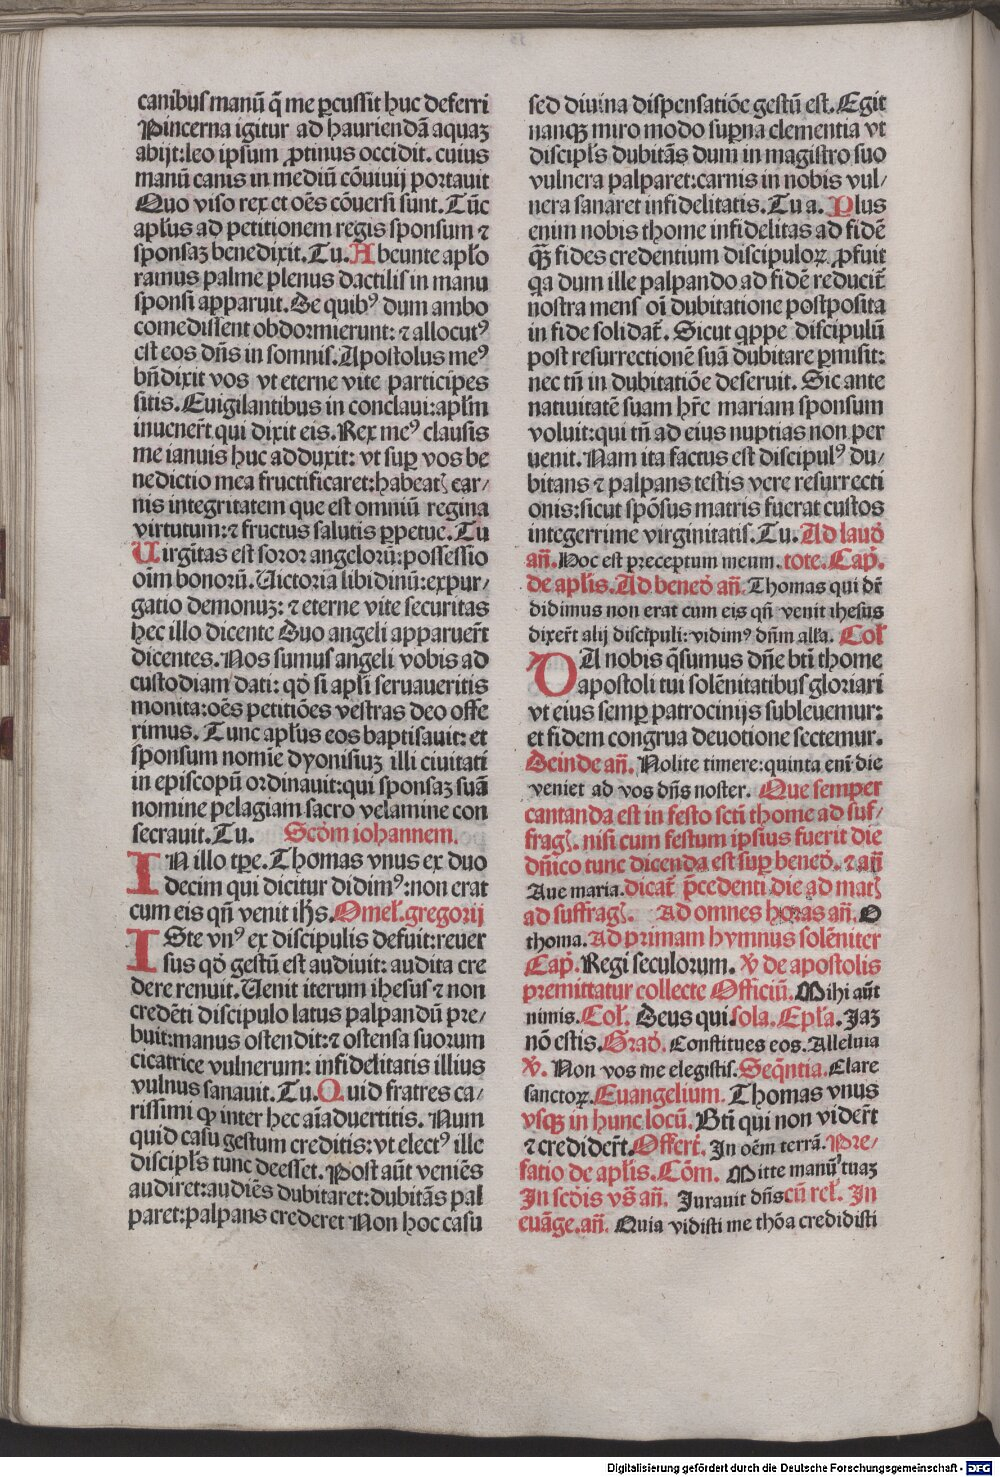 canibus manū q̄ me ꝑcussit huc deferri
Pincerna igitur ad hauriendā aquaʒ
abijt: leo ipsum ꝓtinus occidit. cuius
manū canis in mediū cōuiuij portauit
Quo viso rex et oēs cōuersi sunt. Tūc
apl̄us ad petitionem regis sponsum ⁊
sponsaʒ benedixit. Tu. Abeunte apl̄o
ramus palme plenus dactilis in manu
sponsi apparuit. De quibꝰ dum ambo
comedissent obdormierunt: ⁊ allocutꝰ
est eos dn̄s in somnis. Apostolus meꝰ
bn̄dixit vos vt eterne vite participes
sitis. Euigilantibus in conclaui: apl̄m
inuener̄t qui dixit eis. Rex meꝰ clausis
me ianuis huc adduxit: vt suꝑ vos be
nedictio mea fructificaret: habeatꝭ car/
nis integritatem que est omniū regina
virtutum: ⁊ fructus salutis ꝑpetue. Tu
Uirgītas est soror angeloruū: possessio
oīm bonorū. Uictoria libidinū: expur/
gatio demonuʒ: ⁊ eterne vite securitas
hec illo dicente Duo angeli apparuer̄t
dicentes. Nos sumus angeli vobis ad
custodiam dati: qđ si apl̄i seruaueritis
monita: oēs petitiōes vestras deo offe
rimus. Tunc apl̄us eos baptisauit: et
sponsum nomīe dyonisiuʒ illi ciuitati
in episcopū ordinauit: qui sponsaʒ suā
nomine pelagiam sacro velamine con
secrauit. Tu. Scđm iohannem.
IN illo tꝑe. Thomas vnus ex duo
decim qui dicitur didimꝰ: non erat
cum eis qn̄ venit ih̄s. Omel̄. gregorij
ISte vnꝰ ex discipulis defuit: reuer
sus qđ gestū est audiuit: audita cre
dere renuit. Uenit iterum ihesus ⁊ non
credēti discipulo latus palpandū pre/
buit: manus ostendit: ⁊ ostensa suorum
cicatrice vulnerum: infidelitatis illius
vulnus sanauit. Tu. Quid fratres ca/
rissimi ꝙ inter hec aīaduertitis. Num
quid casu gestum creditis: vt electꝰ ille
discipl̄s tunc deesset. Post aūt veniēs
audiret: audiēs dubitaret: dubitās pal
paret: palpans crederet Non hoc casu
sed diuina dispensatiōe gestū est. Egit
nanqꝫ miro modo suꝑna clementia vt
discipl̄s dubitās dum in magistro suo
vulnera palparet: carnis in nobis vul/
nera sanaret infidelitatis. Tu a. Plus
enim nobis thome infidelitas ad fidē
qꝫ fides credentium discipuloꝝ ꝓfuit
qa dum ille palpando ad fidē reducit̄
nostra mens oī dubitatione postposita
in fide solidat̄. Sicut qppe discipulū
post resurrectionē suā dubitare ꝑmisit:
nec tn̄ in dubitatiōe deseruit. Sic ante
natiuitatē suam hr̄e mariam sponsum
voluit: qui tn̄ ad eius nuptias non per
uenit. Nam ita factus est discipulꝰ du/
bitans ⁊ palpans testis vere resurrecti
onis: sicut spōsus matris fuerat custos
integerrime virginitatis. Tu. Ad lauđ
an̄. Hoc est preceptum meum. tote. Cap̄.
de apl̄is. Ad beneđ an̄. Thomas qui dr̄
didimus non erat cum eis qn̄ venit ihesus
dixer̄t alij discipuli: vidimꝰ dn̄m all̄a. Col̄
DA nobis q̄sumus dn̄e bt̄i thome
apostoli tui solēnitatibus gloriari
vt eius semꝑ patrocinijs subleuemur:
et fidem congrua deuotione sectemur.
Deinde an̄. Nolite timere: quinta eni die
veniet ad vos dn̄s noster. Que semper
cantanda est in festo scti thome ad suf/
fragꝭ. nisi cum festum ipsius fuerit die
dn̄ico tunc dicenda est suꝑ beneđ. ⁊ an̄
Aue maria. dicat̄ p̄cedenti die ad matꝭ
ad suffragꝭ. Ad omnes horas an̄. O
thoma. Ad primam hymnus solēniter
Cap̄. Regi seculorum. ℣ de apostolis
premittatur collecte Officiū. Mihi aūt
nimis. Col̄. Deus qui. sola. Epl̄a. Jaʒ
nō estis. Građ. Constitues eos. Alleluia
℣. Non vos me elegistis. Seq̄ntia. Clare
sanctoꝝ. Euangelium. Thomas vnus
vsqꝫ in hunc locū. Bt̄i qui non vider̄t
⁊ credider̄t. Offert̄. In oēm terrā. Pre/
fatio de apl̄is. Cōm. Mitte manū tuaʒ
In scđis vs̄ an̄. Jurauit dn̄s cū rel̄. In
euāge. an̄. Quia vidisti me thōa credidisti
Digitalisierung gefördert durch die Deutsche Forschungsgemeinschaft - DFG